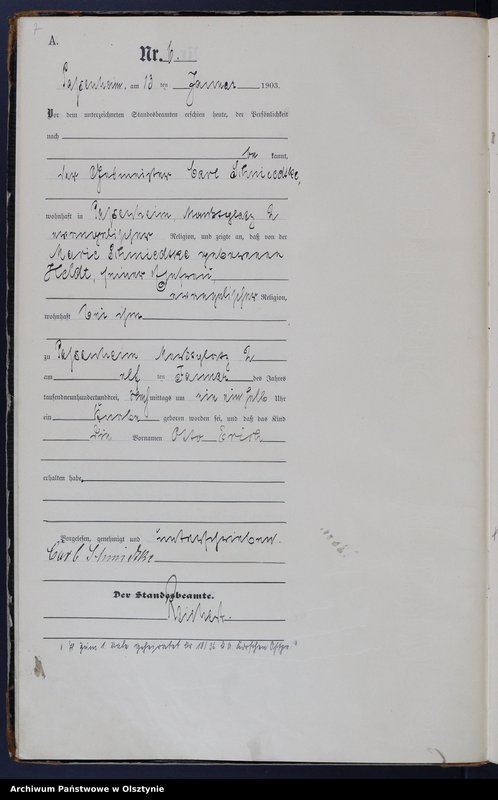 A.
Nr. 6.
Passenheim, am 13 ten Januar 1903.
Vor dem unterzeichneten Standesbeamten erschien heute, der Persönlichkeit
nach
be kannt,
der Carl Schmiedtke,
wohnhaft in Passenheim, Marktplatz 2
evangelischer Religion, und zeigte an, daß von der
Marie Schmiedtke geborenen
Heldt, seiner Ehefrau,
evangelischer Religion,
wohnhaft bei ihm
zu Passenheim Marktplatz 2
am elf ten Januar des Jahres
tausendneunhundertunddrei, mittags um ein halb Uhr
ein Knabe geboren worden sei, und daß das Kind
die Vornamen Otto Erich
erhalten habe.
Vorgelesen, genehmigt und unterschrieben.
Carl Schmidtke
Der Standesbeamte.
Reichert.
zum 1. Male geheiratet Nr 18/36
Archiwum Państwowe w Olsztynie